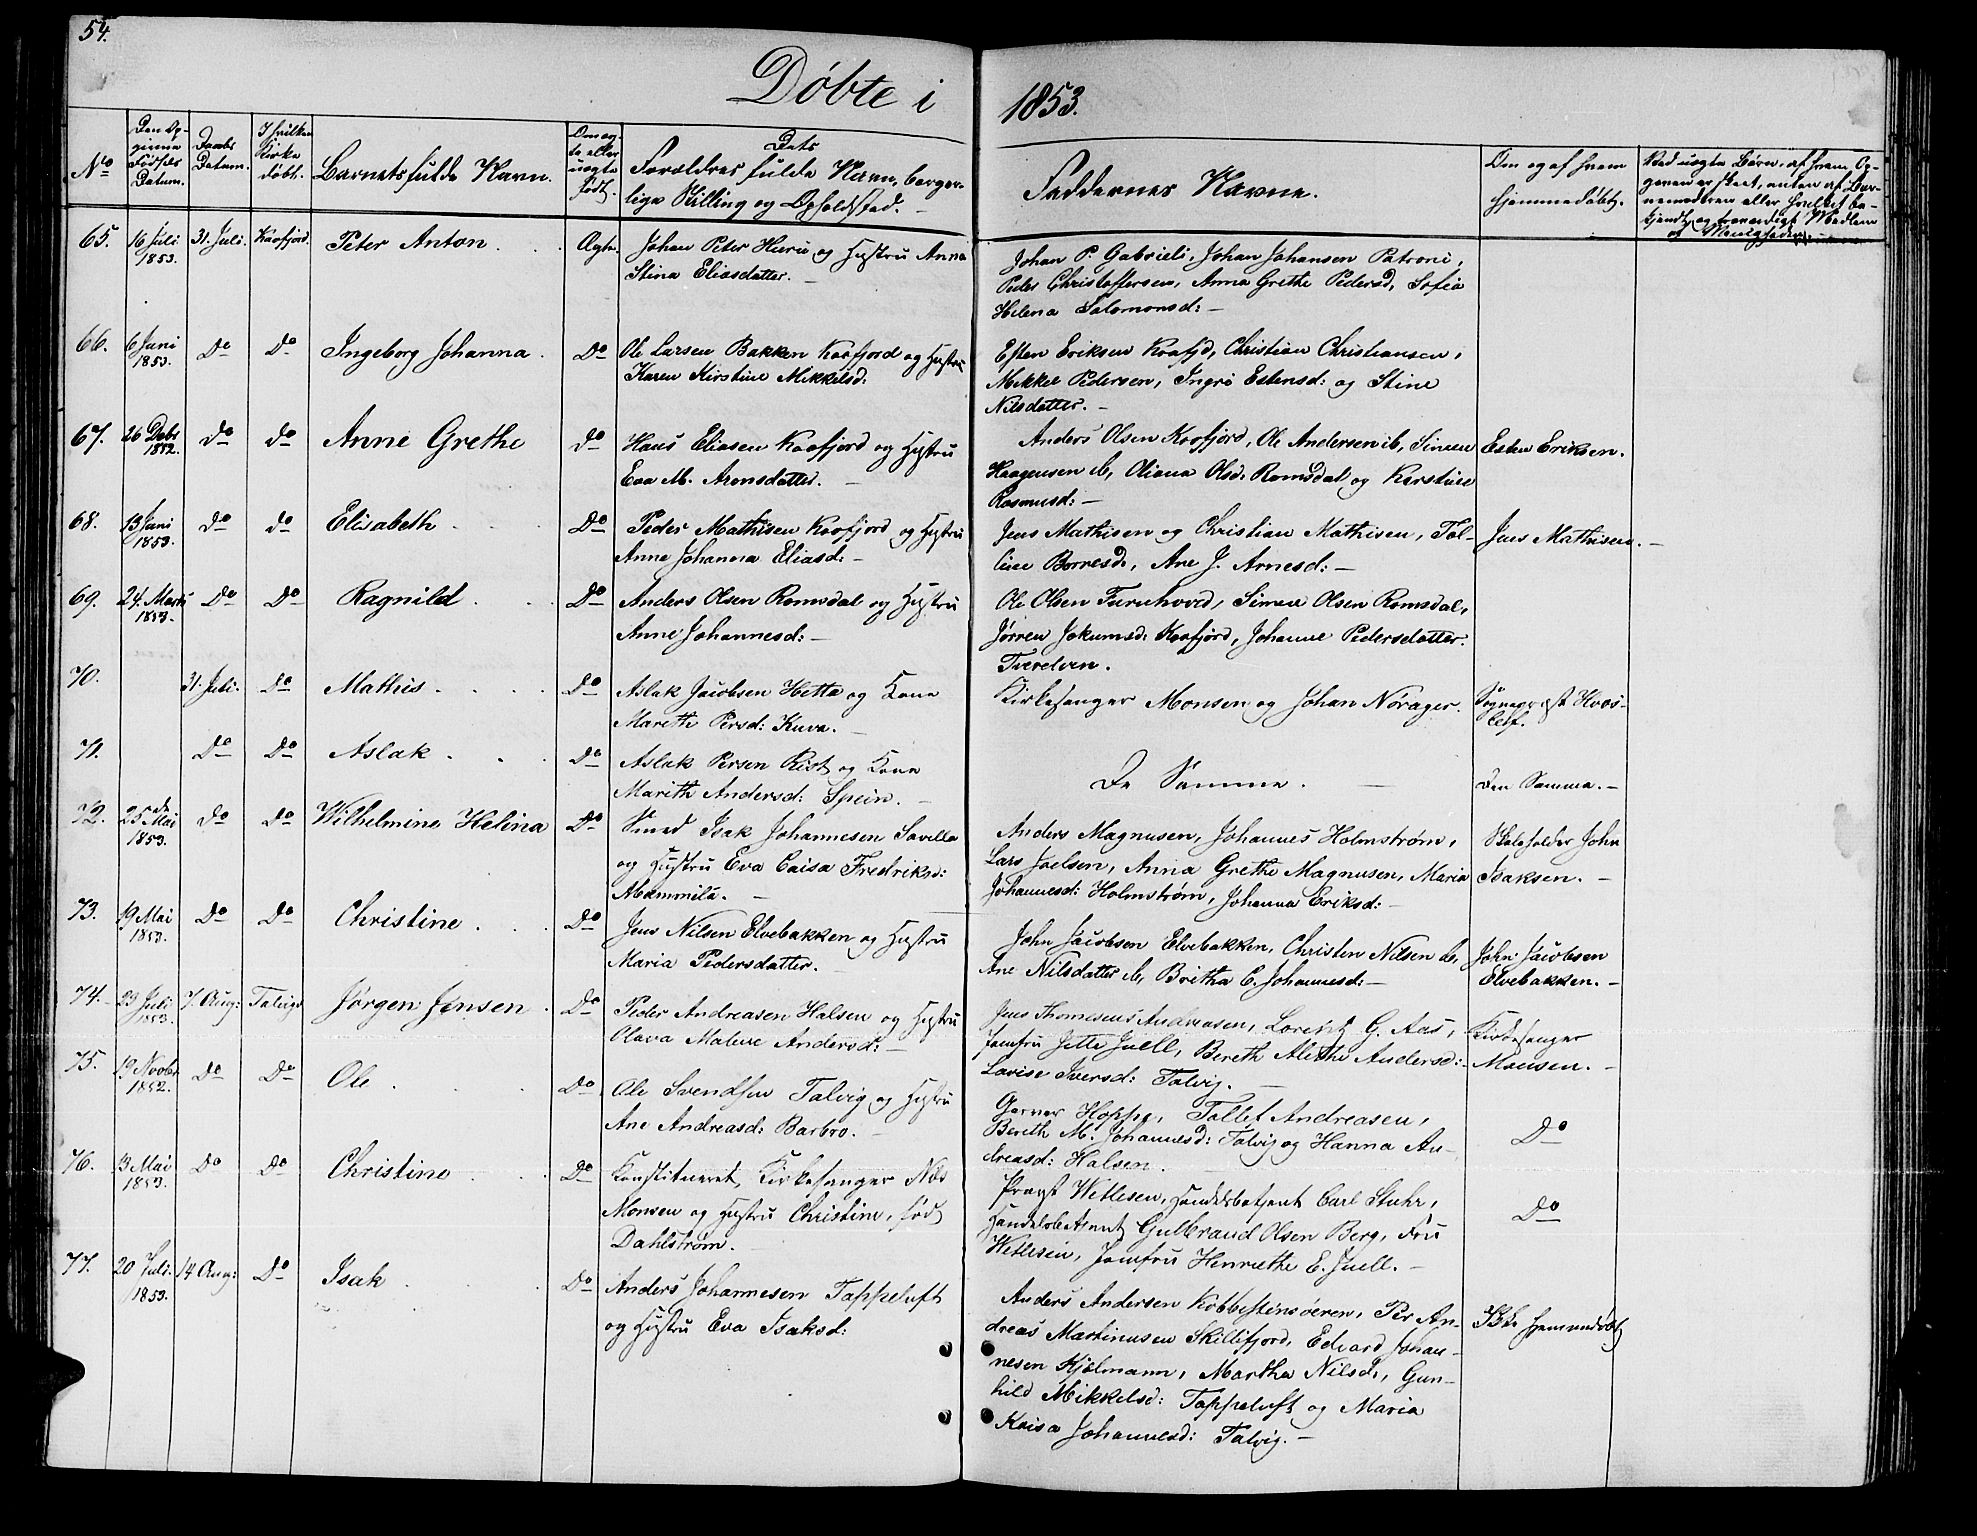 54.
Døbte i 1853.
No
Den Op-
givne
Fødsels
Datum.
Daabs
Datum.
I hvilken
Kirke
døbt.
Barnets fulde Navn.
Om æg-
te eller
uægte
født.
Dets
Forældres fulde Navn, borger-
lige Stilling og Opholdsted.
Faddernes Navne.
Om og af hvem
hjemmedøbt.
Ved uægte Børn, af hvem Op-
gaven er skeet, enten af Bar-
nemoderen eller hvilket be-
kjendt og troværdigt Medlem
af Menigheden.
65. 16 Juli 1853. 31. Juli. Kaafjord. Peter Anton Ægte. Johan Peter Huru og Hustru Anna
Stina Eliasdatter.
Johan P. Gabrieli, Johan Johansen Patroni,
Peder Christoffersen, Anna Grethe Pedersd, Sofia
Helena Salomonsd:
66. 6 Juni 1853. Do Do Ingeborg Johanna. Do Ole Larsen Bakken Kaafjord og Hustru
Karen Kirstine Mikkelsd:
Esten Eriksen Kaafjd, Christian Christiansen,
Mikkel Pedersen, Ingri Estensd: og Stine
Nilsdatter.
67. 26 Debr 1852. do do Anne Grethe do Hans Eliasen Kaafjord og Hustru
Eva M. Aronsdatter.
Anders Olsen Kaafjord, Ole Andersen ib, Simen
Haagensen ib, Oliana Olsd. Romsdal og Kirstine
Rasmusd:
Esten Eriksen.
68. 13 Juni 1853. do do Elisabeth Do Peder Mathisen Kaafjord og Hustru
Anne Johanna Eliasd:
Jens Mathisen og Christian Mathisen, Tal-
line Borresd, Ane J. Arnesd:
Jens Mathisen.
69. 24. Marts 1853. Do Do Ragnild Do Anders Olsen Romsdal og Hustru
Anne Johannesd:
Ole Olsen Furuhoved, Simen Olsen Romsdal,
Jørren Jokumsd: Kaafjord, Johanne Pedersdatter
Tverelven.
70. 31. Juli. Do Mathis Do Aslak Jacobsen Hetta og Kone
Marethe Persd: Kuva.
Kirkesanger Monsen og Johan Nørager.
Sognepræst Hvos-
lef.
71. Do Do Aslak Do Aslak Persen Rist og Kone
Marith Andersd: Spein.
De Samme.
Den Samme.
72. 25de Mai 1853. do Do Wilhelmine Helina Do Smed Isak Johannesen Savilla
og Hustru Eva Caisa Fredriksd:
Mammila.
Anders Magnusen, Johannes Holmstrøm,
Lars Joelsen, Anna Grethe Magnusen, Maria
Johannesd: Holmstrøm, Johanna Eriksd:
Skoleholder John
Isaksen.
73. 19 Mai 1853. Do Do Christine Do Jens Nilsen Elvebakken og Hustru
Maria Pedersdatter.
John Jacobsen Elvebakken, Christen Nilsen ib,
Ane Nilsdatter ib, Britha C. Johannesd:
John Jacobsen
Elvebakken.
74. 23 Juli 1853. 7. Aug: Talvig. Jørgen Jensen Do Peder Andreasen Halsen og Hustru
Olava Malene Andersd:
Jens Thomesens Andreasen, Lorentz G. Aas,
Jomfru Jette Juell, Bereth Alethe Andersd:
Lovise Iversd: Talvig.
Kirkesanger
Monsen.
75. 19 Novbr 1852. Do Do Ole Do Ole Svendsen Talvig og Hustru
Ane Andreasd: Barbro.
Garver Hoppe, Tollef Andreasen,
Bereth M. Johannesd: Talvig og Hanna An-
dreasd: Halsen.
Do
76. 3 Mai 1853. Do Do Christine Do Konstitueret Kirkesanger Nils
Monsen og Hustru Christine, født
Dahlstrøm.
Provst Wetlesen, Handelsbetjent Carl Stuhr,
Handelsbetjent Gulbrand Olsen Berg, Fru
Wetlesen, Jomfru Henriethe E. Juell.
Do
77. 20 Juli 1853. 14 Aug: Do Isak Do Anders Johannesen Tappeluft
og Hustru Eva Isaksd:
Anders Andersen Kobbestensøeren, Per An-
dreas Martinusen Skillefjord, Edvard Johan-
nesen Hjelmann, Martha Nilsd, Gun-
hild Mikkelsd: Tappeluft og Maria
Kaisa Johannesd: Talvig.
Ikke hjemmedøbt